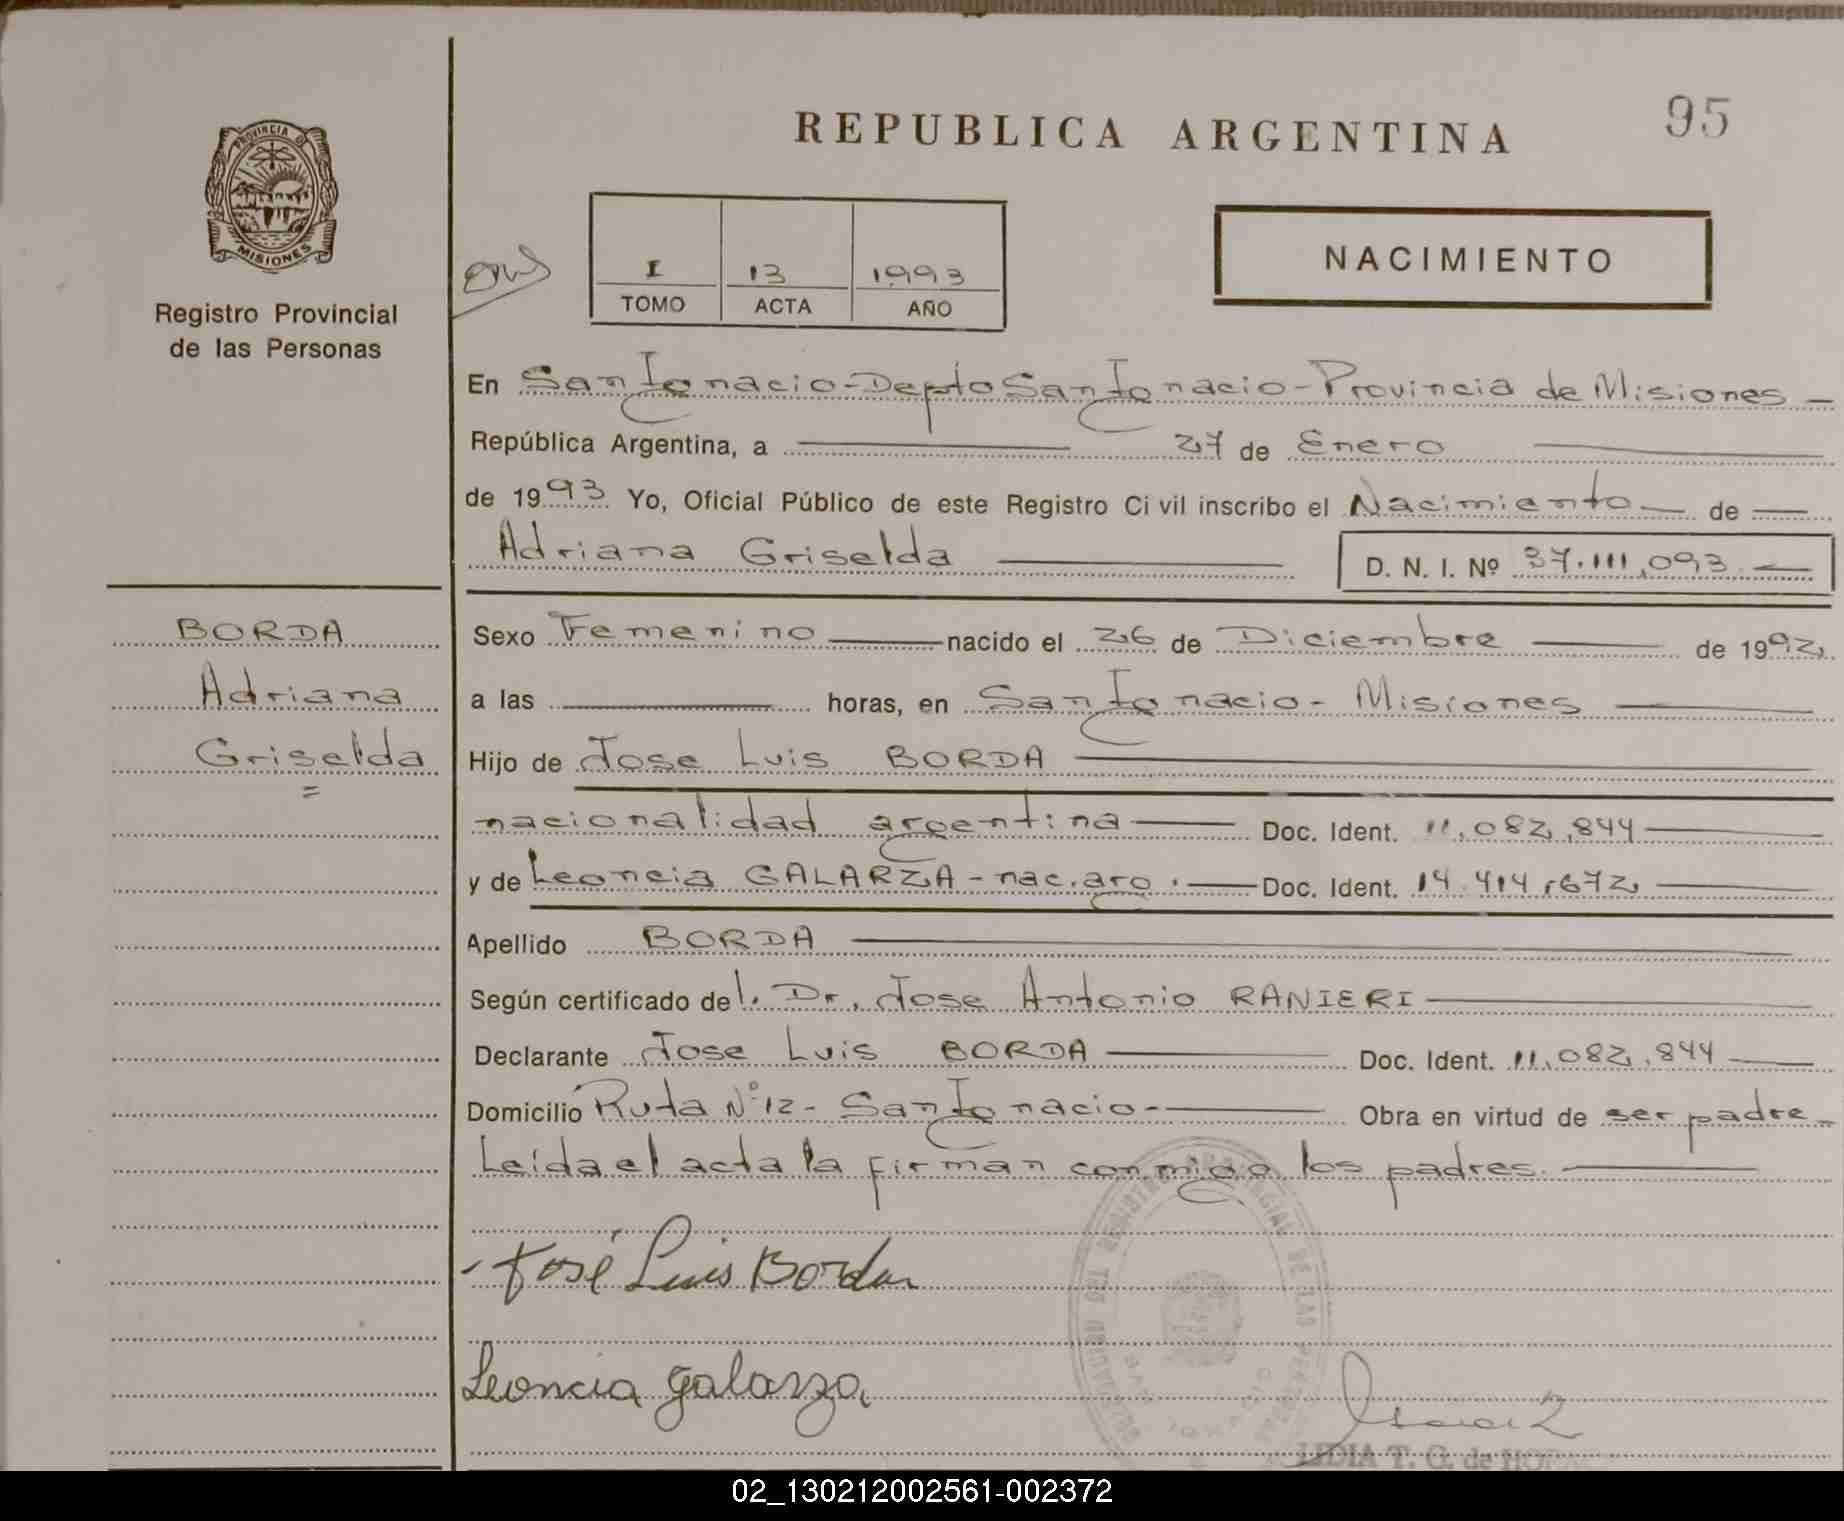 REPUBLICA ARGENTINA
95
PROVINCIA D
MISIONES
Registro Provincial
de las Personas
I 13 1993
TOMO ACTA AÑO
NACIMIENTO
En San Ignacio - Depto San Ignacio - Provincia de Misiones
República Argentina, a 27 de Enero
de 1993 Yo, Oficial Público de este Registro Civil inscribo el Nacimiento de
Adriana Griselda
D. N. I. Nº 37.111,093
BORDA
Adriana
Griselda
Sexo Femenino nacido el 26 de Diciembre de 1992
a las horas, en San Ignacio - Misiones
Hijo de Jose Luis BORDA
nacionalidad argentina Doc. Ident. 11,082,844
y de Leoncia GALARZA - nac. arg. Doc. Ident. 14.414,672
Apellido BORDA
Según certificado del. Dr. Jose Antonio RANIERI
Declarante Jose Luis BORDA Doc. Ident. 11,082,844
Domicilio Ruta Nº 12 - San Ignacio - Obra en virtud de ser padre
Leída el acta la firman conmigo los padres.
José Luis Borda
Leoncia Galarza
LIDIA T. G. de
02_130212002561-002372